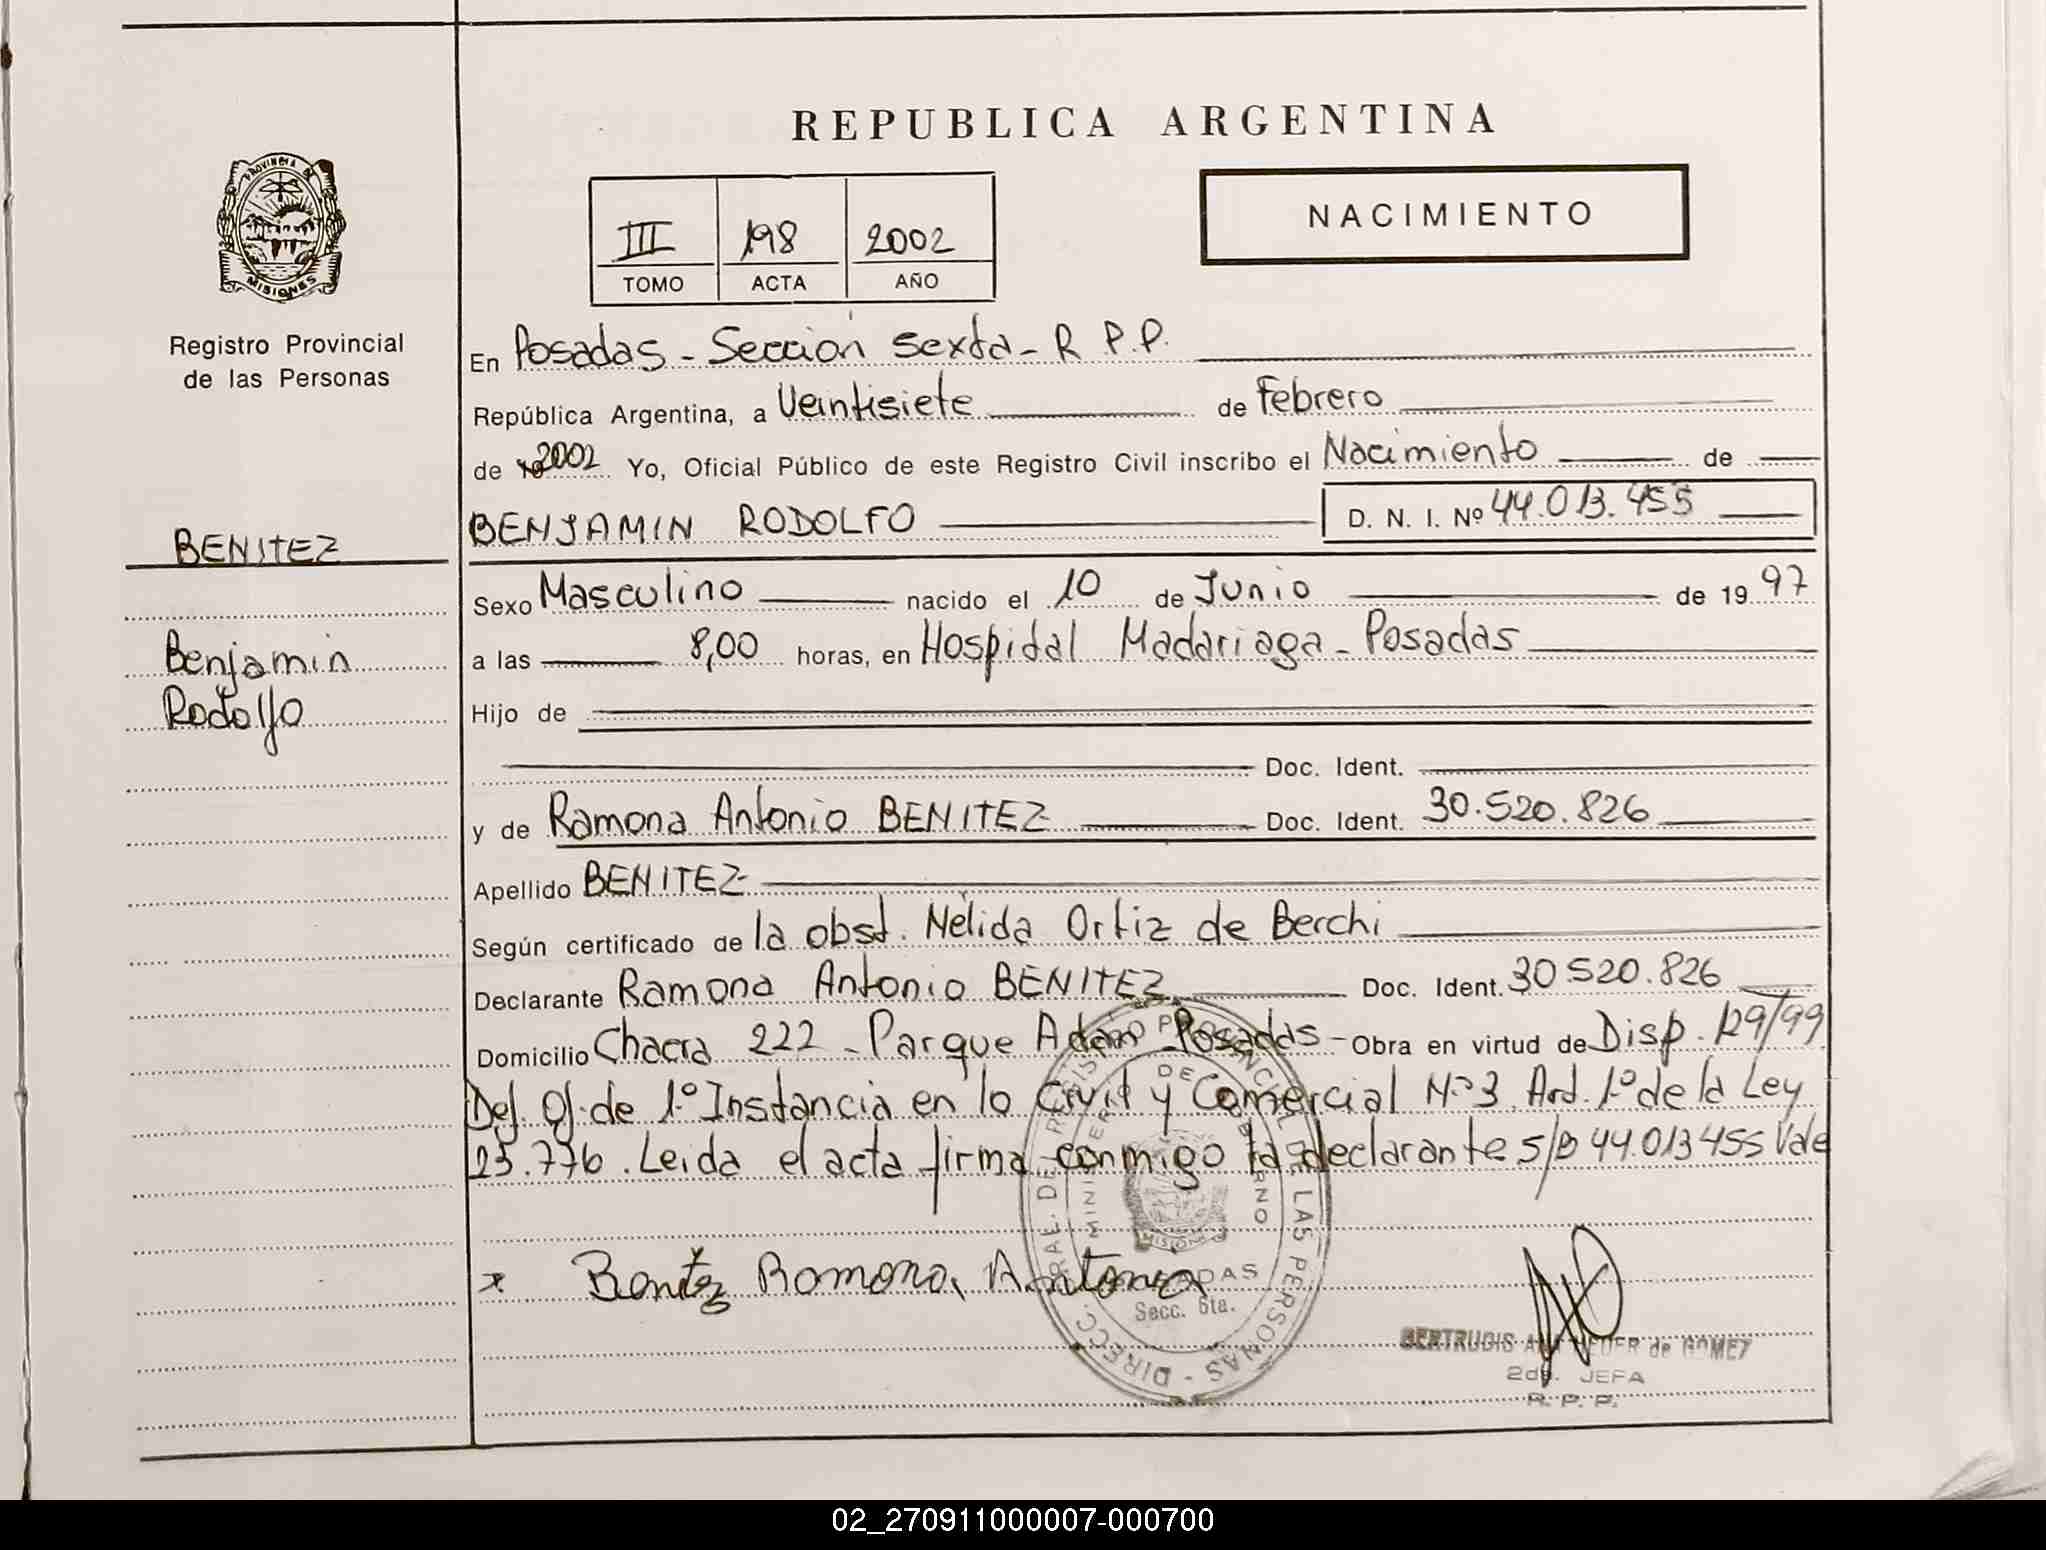 REPUBLICA ARGENTINA
PROVINCIA DE
MISIONES
Registro Provincial
de las Personas
III 198 2002
TOMO ACTA AÑO
NACIMIENTO
En Posadas - Sección Sexta - R P.P.
República Argentina, a Veintisiete de Febrero
de 2002 Yo, Oficial Público de este Registro Civil inscribo el Nacimiento de
BENITEZ
BENJAMIN RODOLFO D. N. I. Nº 44.013.455
Benjamin
Rodolfo
Sexo Masculino nacido el 10 de Junio de 1997
a las 8,00 horas, en Hospidal Madariaga - Posadas
Hijo de
Doc. Ident.
y de Ramona Antonio BENITEZ Doc. Ident. 30.520.826
Apellido BENITEZ
Según certificado de la obst. Nélida Ortiz de Berchi
Declarante Ramona Antonio BENITEZ Doc. Ident. 30.520.826
Domicilio Chacra 222 - Parque Adam Posadas - Obra en virtud de Disp. 129/99
Def. Of. de 1.º Instancia en lo Civil y Comercial N.º 3. Art. 1.º de la Ley
25.776. Leida el acta firma conmigo la declarante S/B 44.013455 Vale
x Benítez Ramona, Antonia
DIRECC. GRAL. DE REGISTRO PROVINCIAL DE LAS PERSONAS -
MINISTERIO DE GOBIERNO
MISIONES
POSADAS
Secc. 6ta.
GERTRUDIS ANA de GOMEZ
2da. JEFA
R. P. P.
02_270911000007-000700